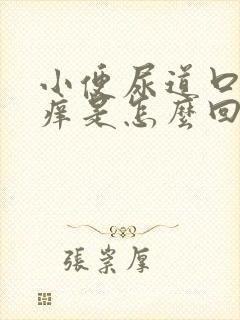 小便尿道口
痒是怎麼回
張崇厚